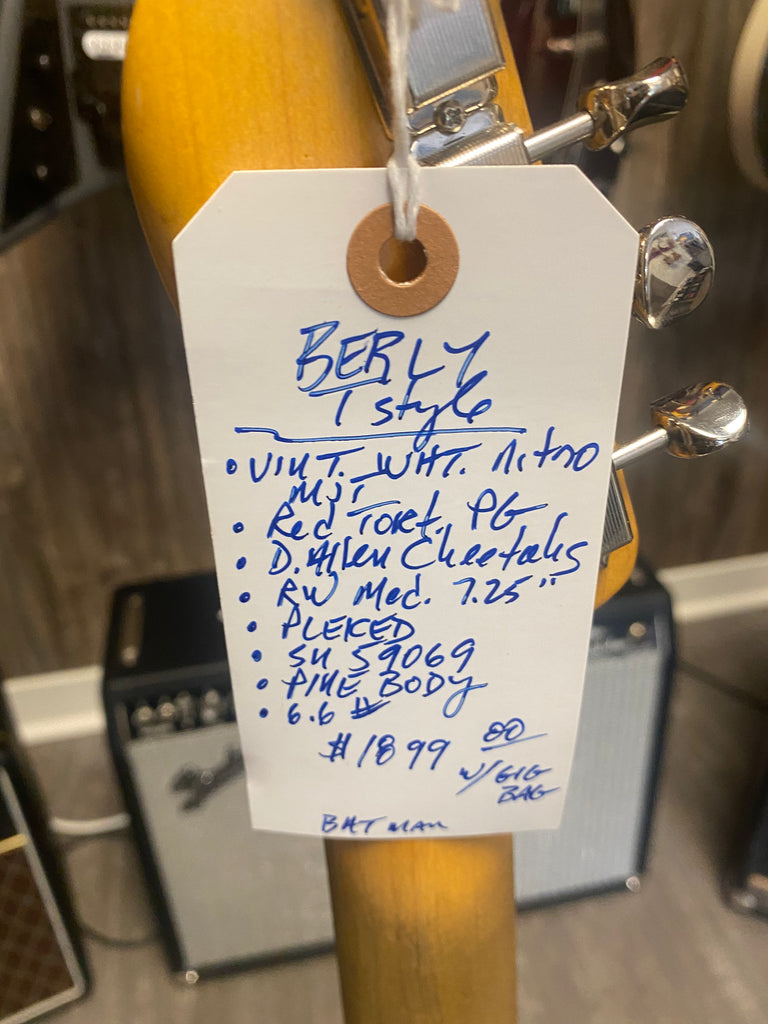 BERLY
T style
• VINT. WHT. Nitro
• Red Tort. PG
• D. Allen Cheetahs
• RW Med. 7.25"
• PLEKED
• SN 59069
• PINE BODY
• 6.6 #
$1899 00
W/ GIG
BAG
BAT MAN
Fender